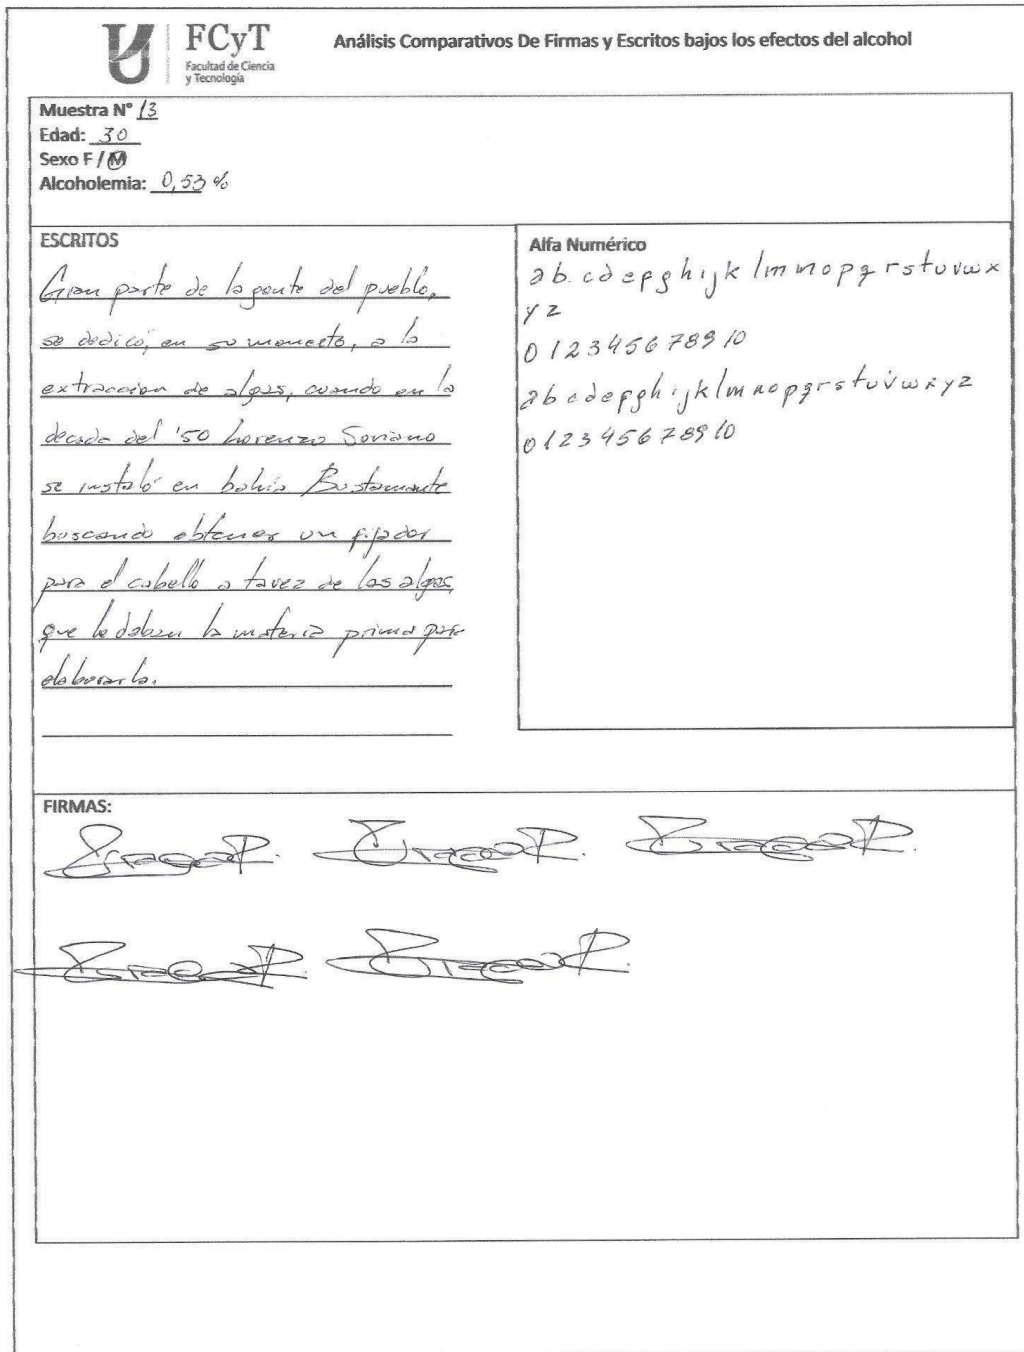 FCyT
Facultad de Ciencia
y Tecnología
Análisis Comparativos De Firmas y Escritos bajos los efectos del alcohol
Muestra N° 13
Edad: 30
Sexo F / M
Alcoholemia: 0,53 %
ESCRITOS
Gran parte de la gente del pueblo,
se dedicó, en su momento, a la
extraccion de algas, cuando en la
decada del '50 Lorenzo Soriano
se instaló en bahia Bustamante
buscando obtener un fijador
para el cabello a tavez de las algas,
que le daban la materia prima para
elaborarlo.
Alfa Numérico
ab.cdefghijklmnopqrstuvwx
yz
012345678910
abcdefghijklmnopqrstuvwxyz
012345678910
FIRMAS: